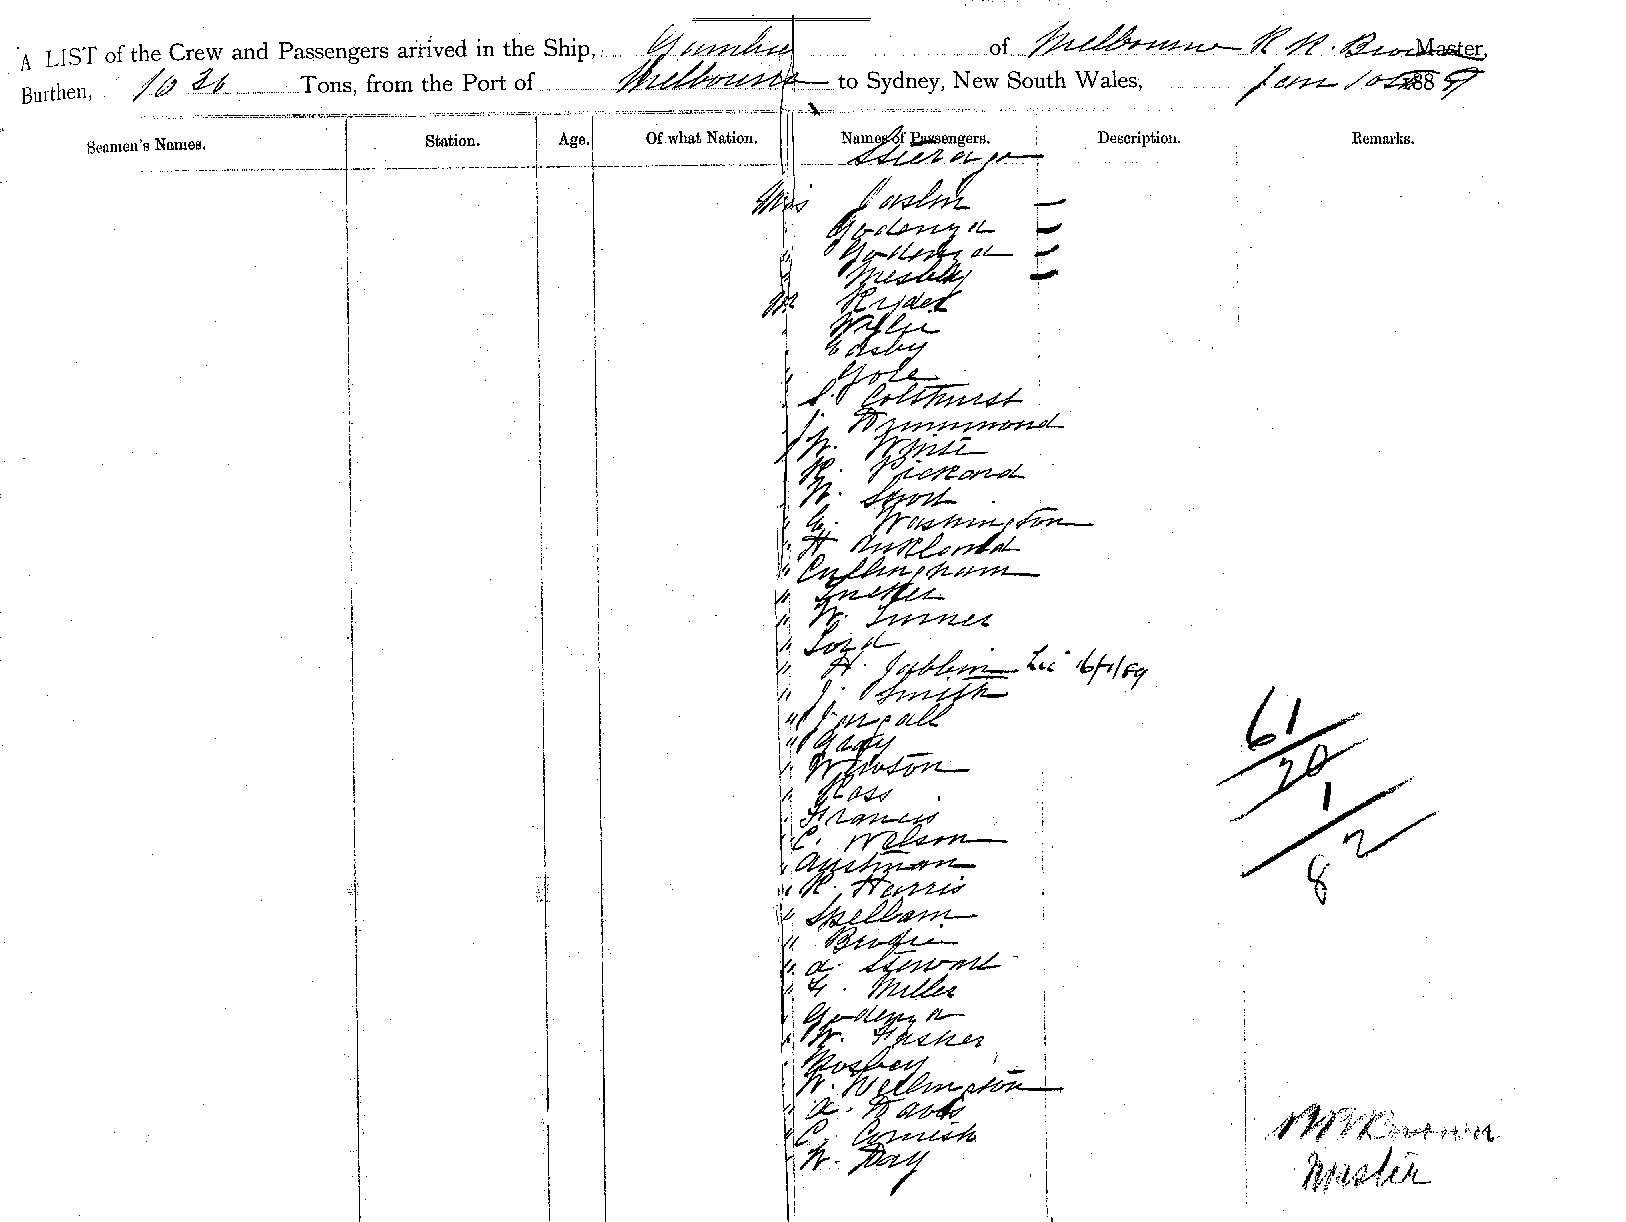 A LIST of the Crew and Passengers arrived in the Ship, of Melbourne R. R. Master,
Burthen, 1026 Tons, from the Port of Melbourne to Sydney, New South Wales, Jan 10 1889
Seamen's Names. Station. Age. Of what Nation. Names of Passengers. Description. Remarks.
Steerage
Mrs Joslin —
—
" —
" —
Mr Ryder
Wylie
Cosby
" Gole
S. Colthurst
J. Drummond
W. White
R. Pickard
W. Short
" G. Washington
" H. Aukland
" Cullingham
" Tucker
" W. Turner
" Loyd
" H. Jublin Lic 16/1/89
" J. Smith
" Jingall
" Gray
" Wilson
" Ross
Francis
" C. Wilson
" Austman
" R. Harris
" Spellam
" Brodie
" A. Stewart
" G. Miller
" W. Fisher
Mosbey
W. Wellington
" A. Davis
" C. Cornish
W. Day
61
20
1
82
Brown
Master